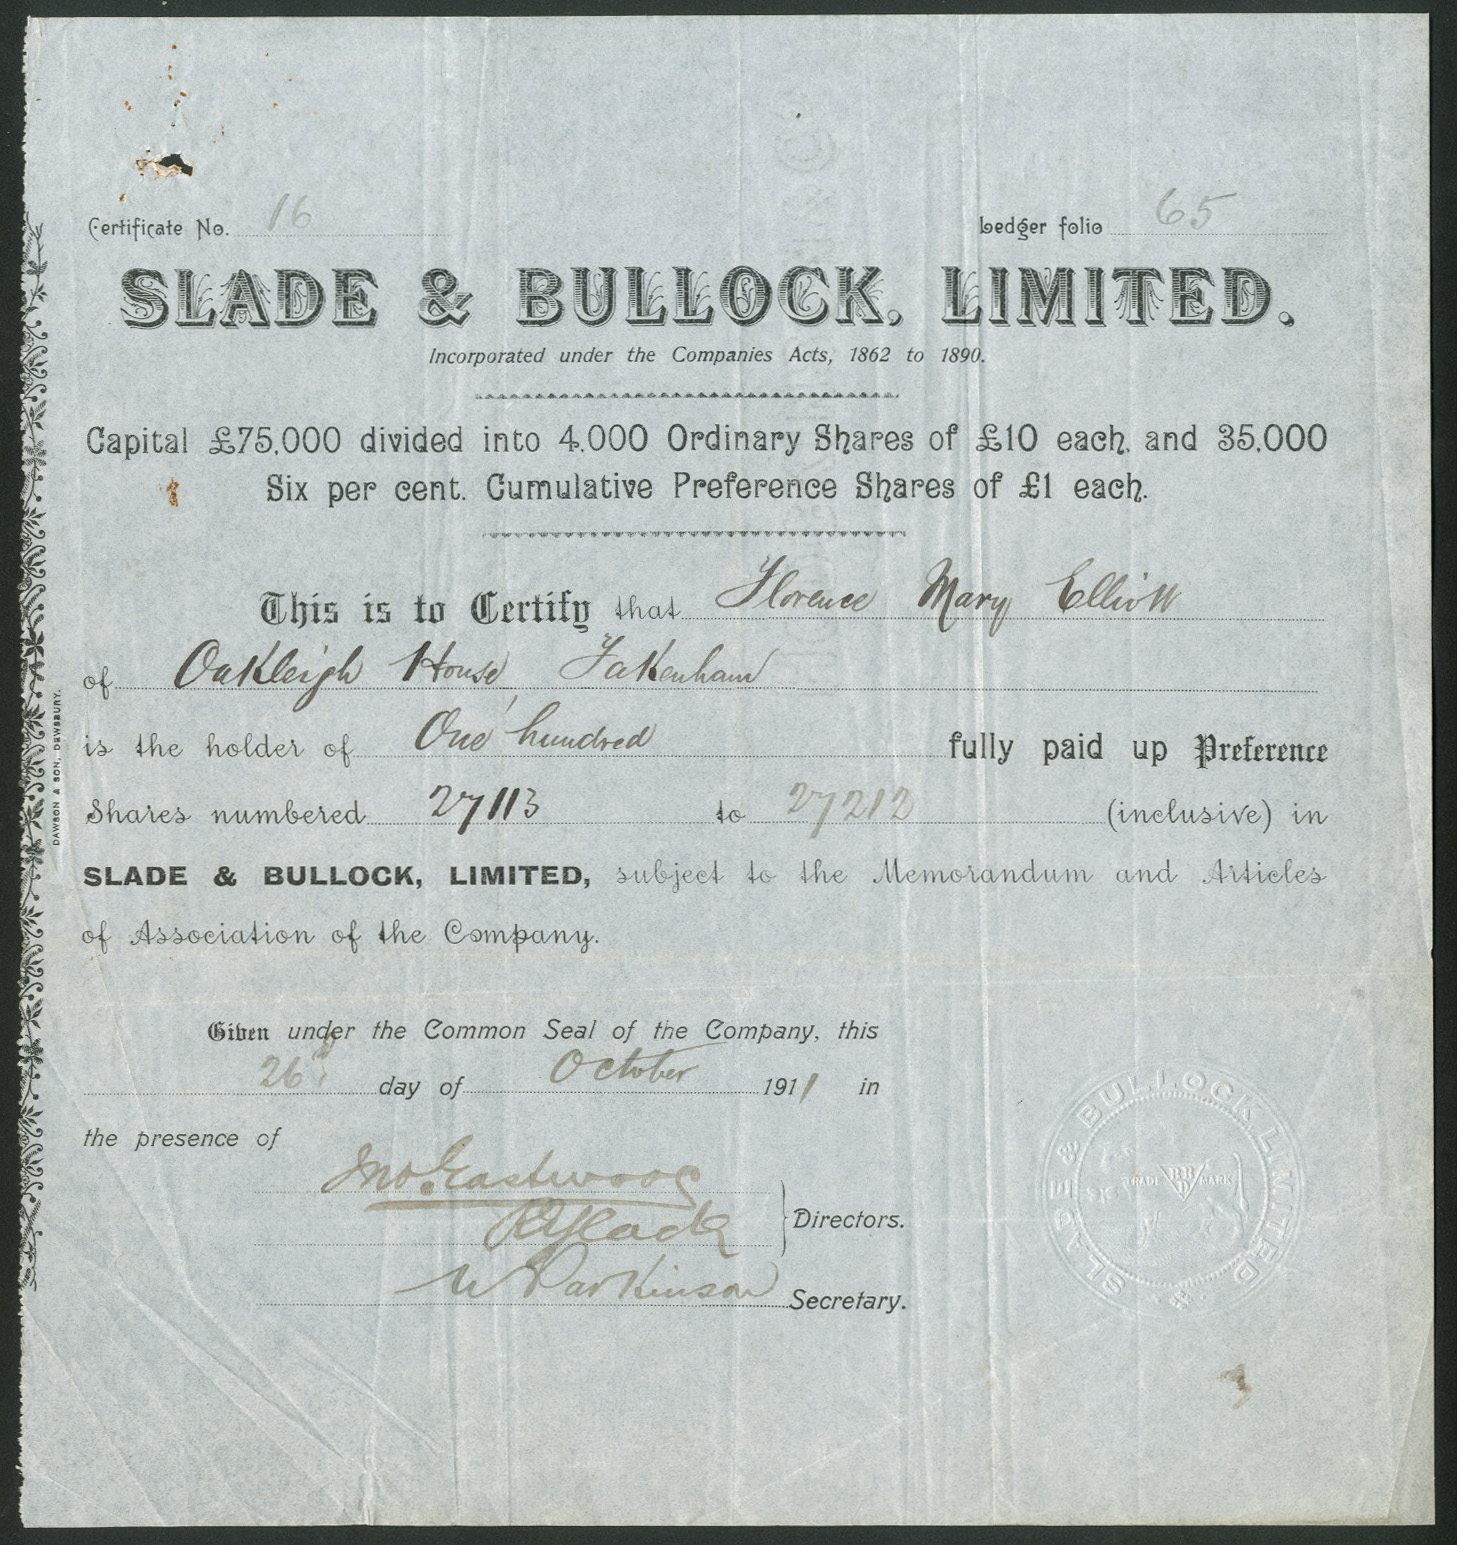 Certificate No. 16 Ledger folio 65
SLADE & BULLOCK, LIMITED.
Incorporated under the Companies Acts, 1862 to 1890.
Capital £75,000 divided into 4,000 Ordinary Shares of £10 each, and 35,000
Six per cent. Cumulative Preference Shares of £1 each.
This is to Certify that Florence Mary Elliott
of Oakleigh House, Fakenham
is the holder of One hundred fully paid up Preference
Shares numbered 27113 to 27212 (inclusive) in
SLADE & BULLOCK, LIMITED, subject to the Memorandum and Articles
of Association of the Company.
Given under the Common Seal of the Company, this
26th day of October 1911 in
the presence of
Jno. Eastwood
Directors.
W Parkinson Secretary.
DAWSON & SON, DEWSBURY.
SLADE & BULLOCK LIMITED
TRADE BBB MARK